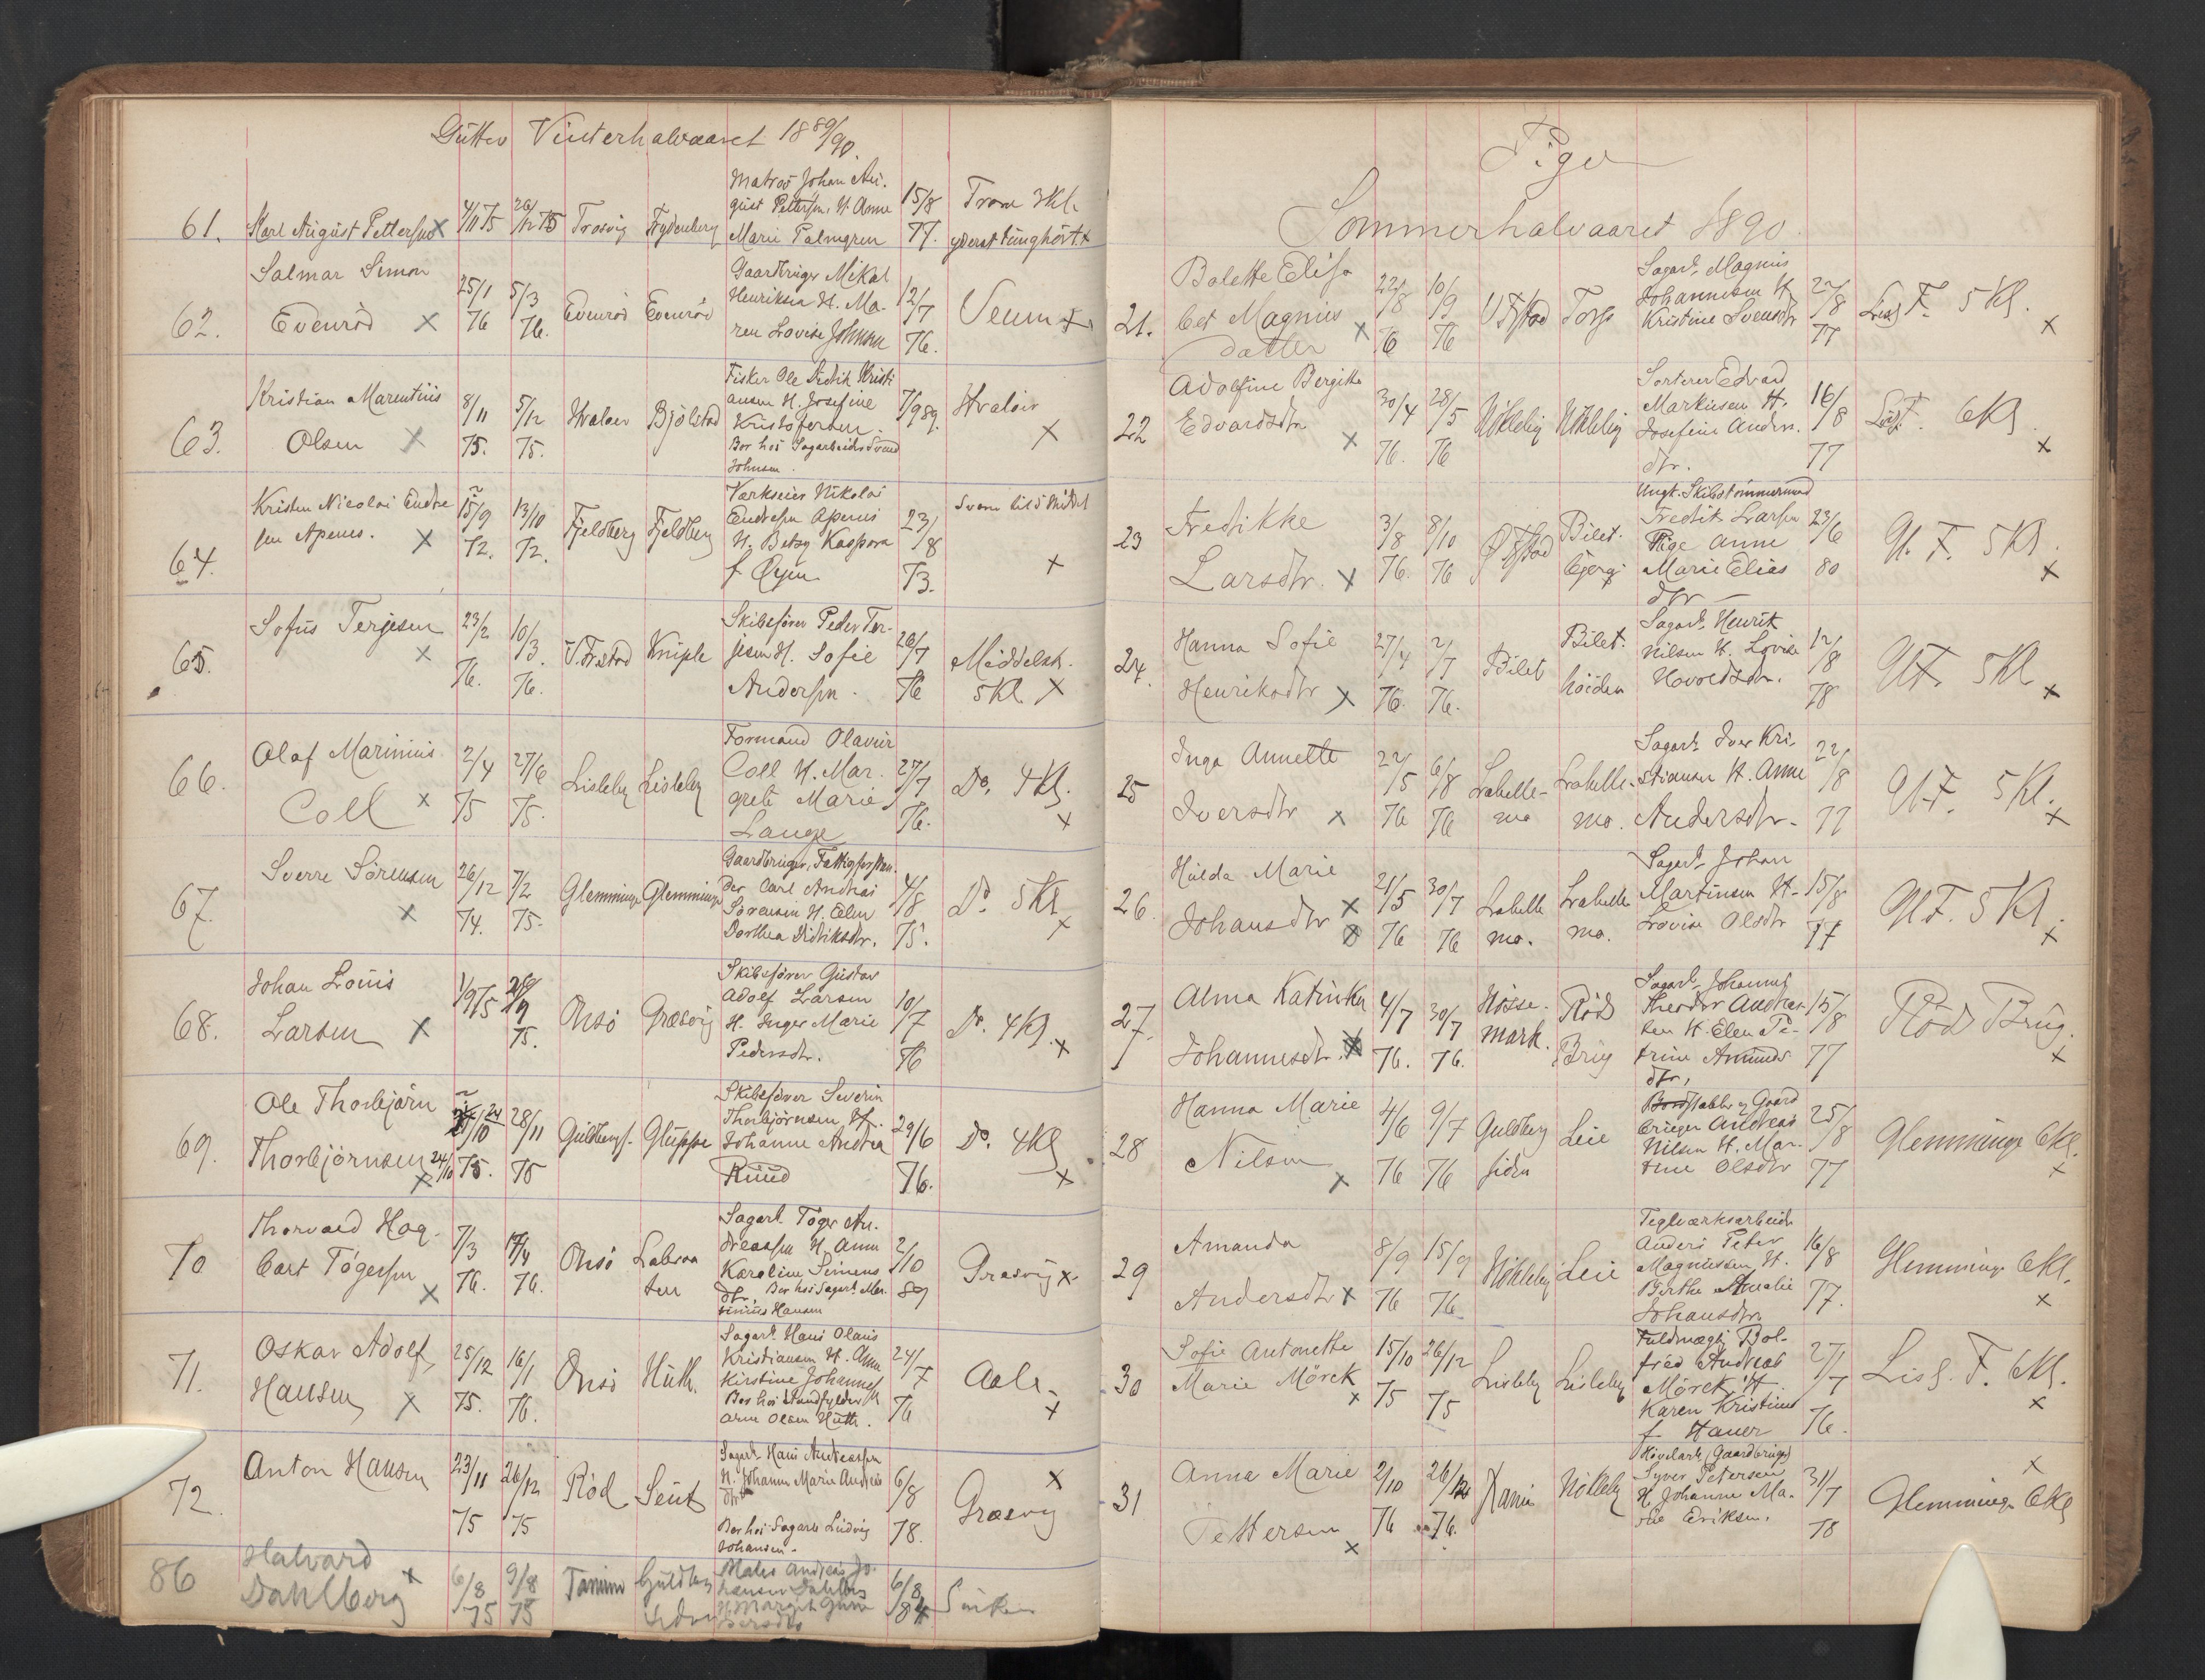 Gutter Vinterhalvaaret 1889/90.
61. Karl August Pettersen x 4/11 75 26/12 75 Trosvig Frydenberg Matros Johan Au-
gust Pettersen, H. Anne
Marie Palmgren 15/8 77. Trosv 3Kl.
yderst tunghört x
62. Salmar Simon
Evenröd x 25/1 76 5/3 76. Evenröd Evenröd Gaardbruger Mikal
Henriksen H. Ma-
ren Lovise Johnsen 12/7 76. Veum x
63. Kristian Marentius
Olsen x 8/11 75. 5/12 75. Hvaløer Bjölstad Fisker Ole Didrik Kristi
ansen H. Josefine
Kristofersen.
Bor hos Sagarbeider Svend
Johnsen. 7/9 89. Hvaløer
x
64. Kristen Nicolai Endre
sen Apenes. x 15/9 72. 13/10 72. Fjeldberg Fjeldberg Værkseier Nikolai
Endresen Apenes
H. Betzy Kaspara
f Øyen 23/8 73.
x
65. Sofus Terjesen
x 23/2 76. 10/3 76. V. Fr.stad Kniple Skibsfører Peder Ter-
jesen H. Sofie
Andersen. 26/7 76 Middelsk.
5Kl. x
66. Olaf Marinius
Coll x 2/4 75 27/6 75. Lisleby Lisleby Formand Olavus
Coll H. Mar-
grete Marie
Lange 27/7 76. Do. 4Kl.
x
67. Sverre Sörensen
x 26/12 74. 7/2 75. Glemminge Glemminge Gaardbruger, Fattigforstan-
der Carl Andreas
Sörensen H. Elen
Dorthea Didriksdtr. 4/8 75. Do. 5Kl
x
68. Johan Louis
Larsen x 1/9 75 75. Onsö Græsvig Skibsfører Gustav
Adolf Larsen
H. Inger Marie
Pedersdtr. 10/7 76 Do. 4Kl.
x
69. Ole Thorbjörn
Thorbjörnsen 24/10 x 75. 28/11 75 Guldbergs. Gluppe Skibsfører Severin
Thorbjörnsen H.
Johanne Andrea
Ruud 29/6 76. Do. 4Kl
x
70 Thorvald Hag-
bart Tögersen
x 7/3 76. 17/4 76. Onsö Labraa
ten Sagarb. Töger An-
dreassen H. Anne
Karoline Simens
dtr. Bor hos Sagarb. Mar-
tinius Hansen 2/10 89 Græsvig x
71. Oskar Adolf
Hansen x 25/12 75. 16/1 76. Onsö Huth. Sagarb. Hans Olaus
Kristiansen H. Anne
Kirstine Johannes
Bor hos
Arne Olsen Huth. 24/7 76 Aale.
x
72. Anton Hansen 23/11 75 26/12 75 Röd Seut Sagarb. Hans Andreassen
H. Johanne Marie Andreas
dtr.
Bor hos Sagarb. Ludvig
Johansen. 6/8 78. x
Græsvig
86 Halvard
Dahlberg x 6/8 75 9/8 75 Guldberg
siden Andreas Jo-
hansen Dahlberg
H. Margit Gun
6/8 84
Piger
Sommerhalvaaret 1890.
21. Bolette Elisa
bet Magnus
datter x 22/8 76 10/9 76 V Fstad Torp Sagarb. Magnus
Johannesen H
Kristine Svensdtr 22/8 77 Lisl. F. 5Kl.
x
22 Adolfine Bergithe
Edvardsdtr
x 30/4 76. 28/5 76 Nökleby Nökleby Sorterer Edvard
Markusen H.
Josefine Anders.
dtr. 16/8 77 Lisl. F. 6Kl.
x
23 Fredrikke
Larsdtr. x 3/8 76. 8/10 76 Ø Fstad Bilet.
bjerg. Ungk. Skibstömmermand
Fredrik Larsen
Pige Anne
Marie Elias
dtr 23/6 80 Gl. F. 5Kl.
x
24. Hanna Sofie
Henriksdtr x 27/4 76. 2/7 76. Bilet Bilet.
höiden Sagarb. Henrik
Nilsen H. Lovise
Havoldsdtr. 12/8 78 Gl.F. 5Kl.
x
25 Inga Annette
Iversdtr x 22/5 76 6/8 76 Labelle-
mo Labelle-
mo. Sagarb. Iver Kri-
stiansen H. Anne
Andersdtr. 22/8 77 Gl.F. 5Kl.
x
26. Hulda Marie
Johansdtr x 21/5 76 30/7 76 Labelle
mo. Labelle
mo. Sagarb. Johan
Martinsen H.
Lovise Olsdtr 15/8 77 Gl.F. 5Kl.
x
27. Alma Katinka
Johannesdtr. 4/7 76. 30/7 76. Hässe-
mark. Röd
Brug Sagarb. Johannes
Theodor Andrea-
sen H. Elen Pe-
trine Amunds
dtr. 15/8 77 Röd Brug.
x
28 Hanna Marie
Nilsen
x 4/6 76 9/7 76 Guldberg
siden Leie Bordstabler og Gaard
bruger Andreas
Nilsen H. Mar-
tine Olsdtr 25/8 77 Glemminge 6Kl.
x
29 Amanda
Andersdtr x 8/9 76 15/9 76 Nökleby Leie Teglværksarbeider
Anders Peter
Magnussen H.
Berthe Amalie
Johansdtr 16/8 77. Glemminge 6Kl.
x
30 Sofie Antonette
Marie Mörck
x 15/10 75 26/12 75 Lisleby Lisleby Fuldmægtig Bot-
fred Andreas
Mörck, H
Karen Kristine
f Hauer 27/7 76. Lisl. F. 6Kl.
x
31 Anna Marie
Pettersen
x 2/10 76 26/12 76. Nökleby Hövelarb. (Gaardbruger)
Syver Petersen
H. Johanne Ma-
rie Eriksen. 31/7 78 x
Glemminge 6Kl